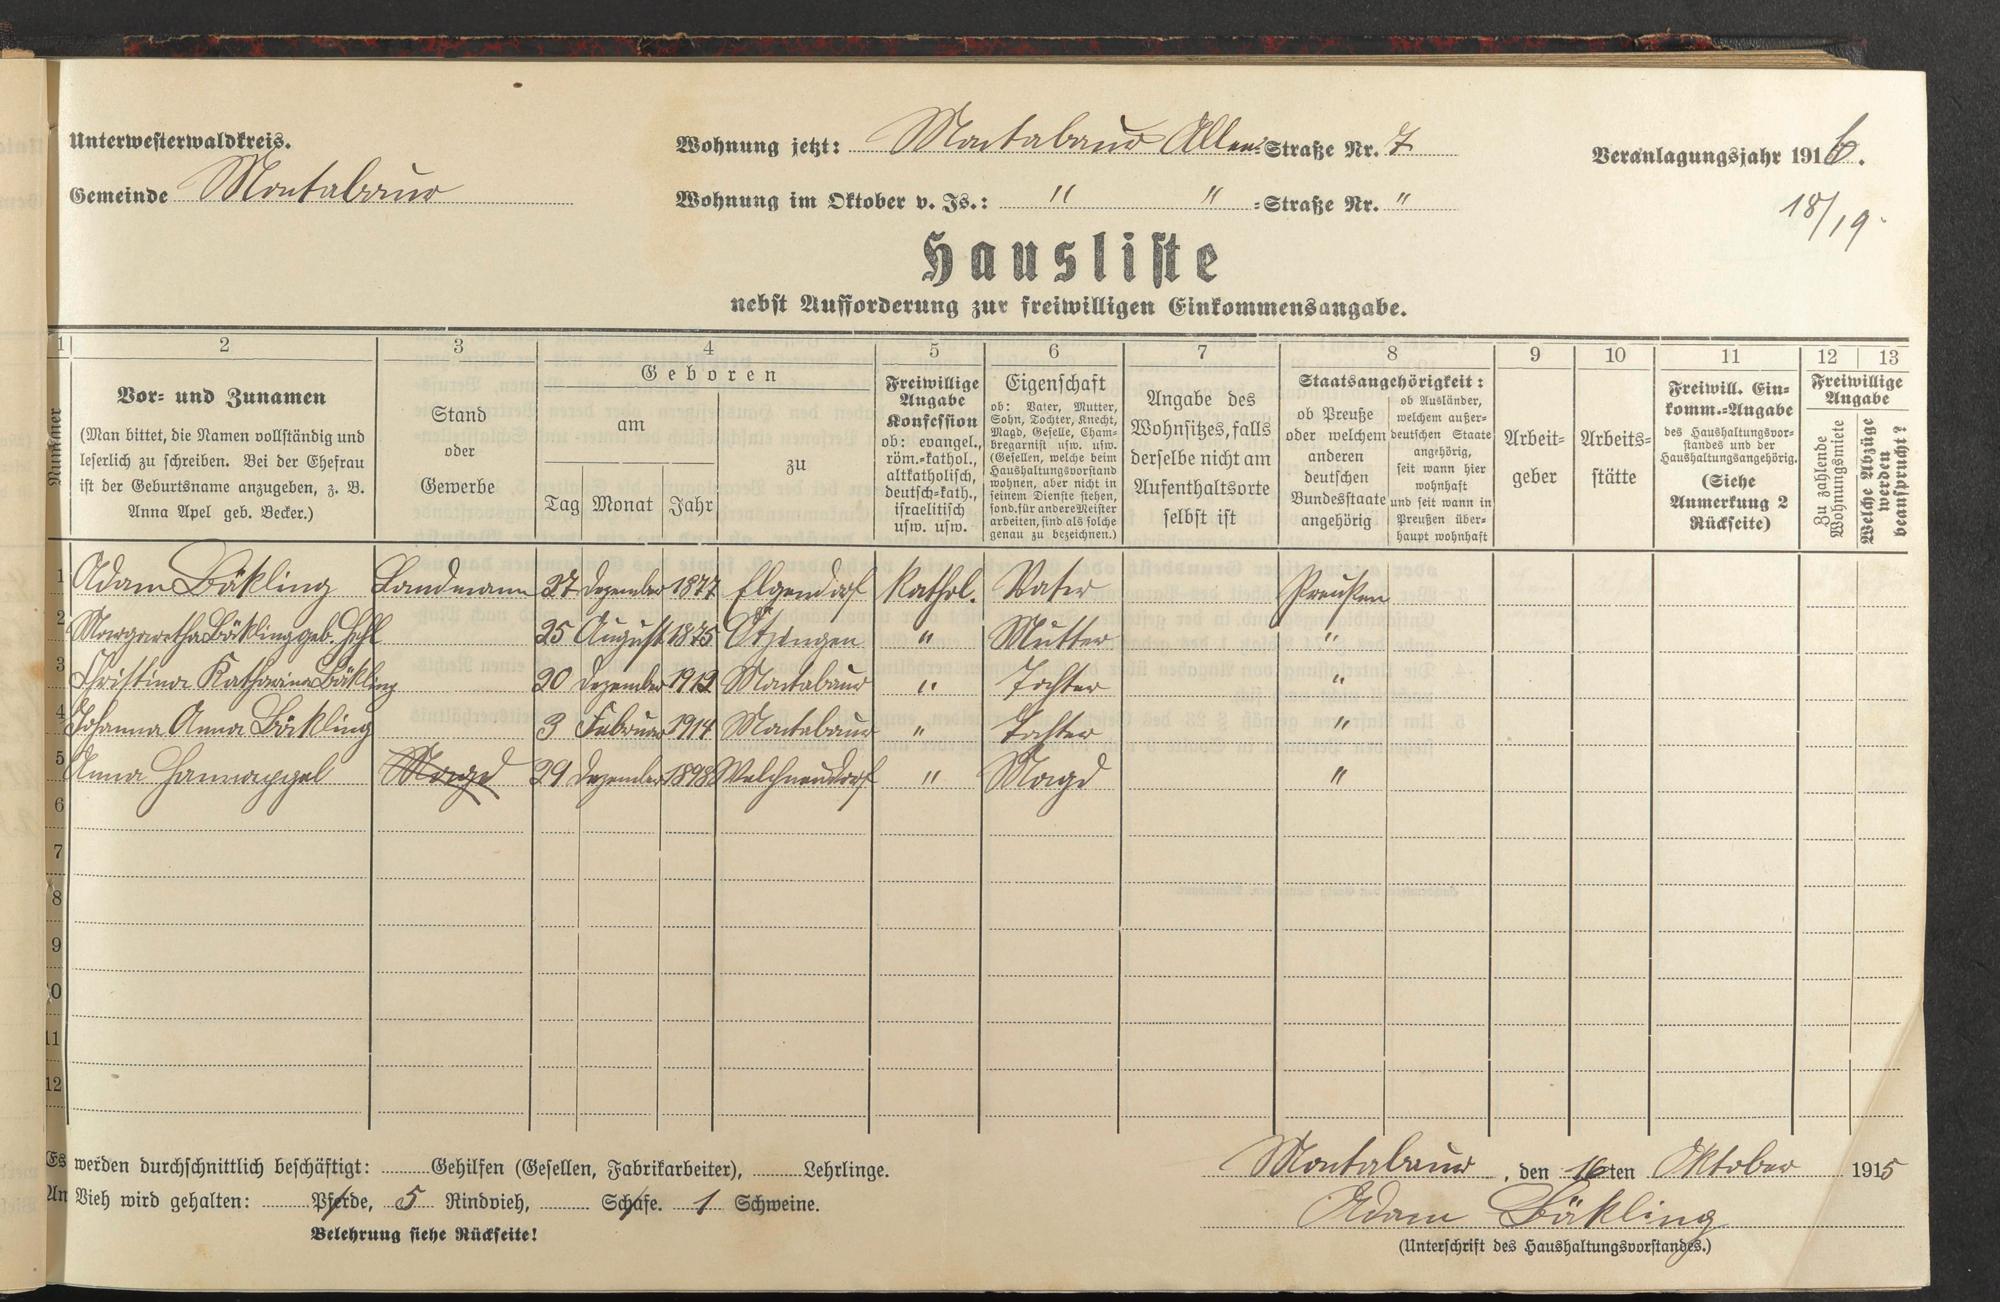 Unterwesterwaldkreis.
Gemeinde Montabaur
Wohnung jetzt: Montabaur Allee-Straße Nr. 7
Wohnung im Oktober v. Js.: " " -Straße Nr. "
Veranlagungsjahr 1916.
18/19
Hausliste
nebst Aufforderung zur freiwilligen Einkommensangabe.
1 2 3 4 5 6 7 8 9 10 11 12 13
Nummer
Vor- und Zunamen
(Man bittet, die Namen vollständig und
leserlich zu schreiben. Bei der Ehefrau
ist der Geburtsname anzugeben, z. B.
Anna Apel geb. Becker.)
Stand
oder
Gewerbe
Geboren
am
Tag Monat Jahr
zu
Freiwillige
Angabe
Konfession
ob: evangel.,
röm.-kathol.,
altkatholisch,
deutsch-kath.,
israelitisch
usw. usw.
Eigenschaft
ob: Vater, Mutter,
Sohn, Tochter, Knecht,
Magd, Geselle, Cham-
bregarnist usw. usw.
(Gesellen, welche beim
Haushaltungsvorstand
wohnen, aber nicht in
seinem Dienste stehen,
sond. für andere Meister
arbeiten, sind als solche
genau zu bezeichnen.)
Angabe des
Wohnsitzes, falls
derselbe nicht am
Aufenthaltsorte
selbst ist
Staatsangehörigkeit:
ob Preuße
oder welchem
anderen
deutschen
Bundesstaate
angehörig
ob Ausländer,
welchem außer-
deutschen Staate
angehörig,
seit wann hier
wohnhaft
und seit wann in
Preußen über-
haupt wohnhaft
Arbeit-
geber
Arbeits-
stätte
Freiwill. Ein-
komm.-Angabe
des Haushaltungsvor-
standes und der
Haushaltungsangehörig.
(Siehe
Anmerkung 2
Rückseite)
Freiwillige
Angabe
Zu zahlende
Wohnungsmiete
Welche Abzüge
werden
beansprucht?
1 Adam Bökling Landmann 27 Dezember 1877 Elgendorf Kathol. Vater Preußen
2 Margaretha Bökling geb. Hehl 25 August 1875 Ötzingen " Mutter "
3 Christina Katharina Bökling 20 Dezember 1912 Montabaur " Tochter "
4 Johanna Anna Bökling 3 Februar 1914 Montabaur " Tochter "
5 Anna Hannappel Magd 29 Dezember 1898 Welschneudorf " Magd "
6
7
8
9
10
11
12
Es werden durchschnittlich beschäftigt: Gehilfen (Gesellen, Fabrikarbeiter), Lehrlinge.
An Vieh wird gehalten: Pferde, 5 Rindvieh, Schafe. 1 Schweine.
Belehrung siehe Rückseite!
Montabaur, den 16ten Oktober 1915
Adam Bökling
(Unterschrift des Haushaltungsvorstandes.)